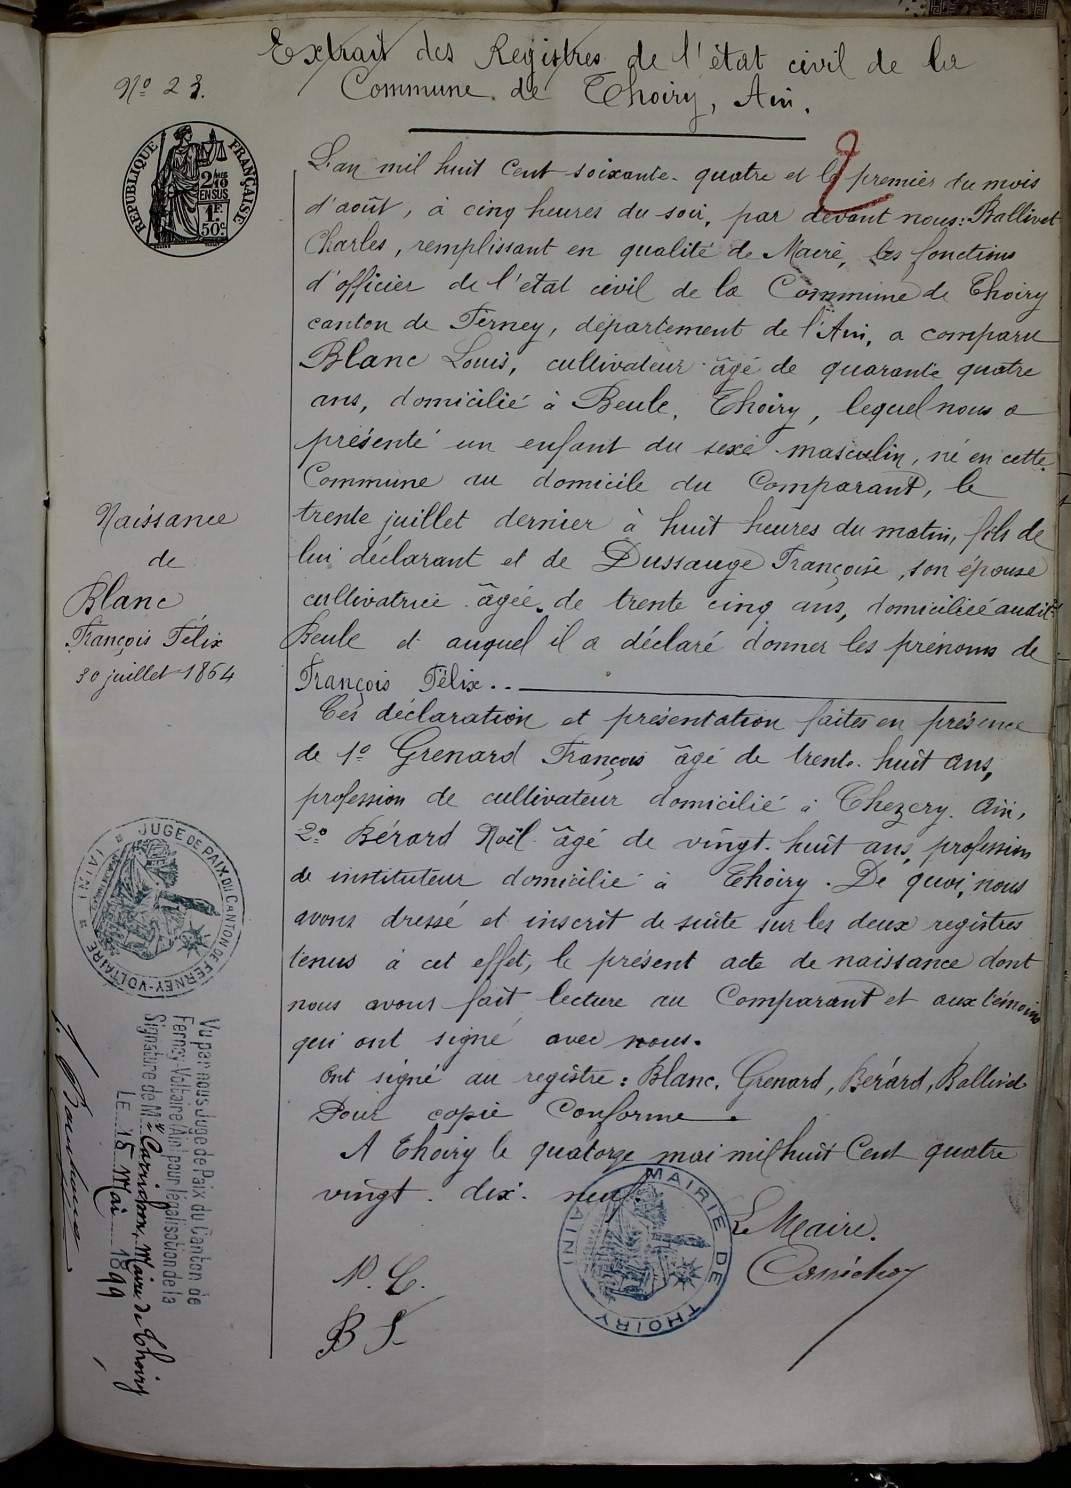 Extrait des Registres de l'état civil de la
Commune de Thoiry, Ain.
Nº 23.
RÉPUBLIQUE FRANÇAISE
2/10 EN SUS
1 F. 50 c.
2
L'an mil huit cent soixante-quatre et le premier du mois
d'août, à cinq heures du soir, par devant nous: Ballivet
Charles, remplissant en qualité de Maire, les fonctions
d'officier de l'état civil de la Commune de Thoiry
canton de Ferney, département de l'Ain, a comparu
Blanc Louis, cultivateur âgé de quarante quatre
ans, domicilié à Beule, Thoiry, lequel nous a
présenté un enfant du sexe masculin, né en cette
Commune au domicile du Comparant, le
trente juillet dernier à huit heures du matin, fils de
lui déclarant et de Dussauge Françoise, son épouse
cultivatrice âgée de trente cinq ans, domiciliée audit
Beule et auquel il a déclaré donner les prénoms de
François Félix..
Naissance
de
Blanc
François Félix
30 juillet 1864
Ces déclaration et présentation faites en présence
de 1º Grenard François âgé de trente-huit ans,
profession de cultivateur domicilié à Chezery Ain,
2º Bérard Noël âgé de vingt-huit ans, profession
de instituteur domicilié à Thoiry. De quoi, nous
avons dressé et inscrit de suite sur les deux registres
tenus à cet effet, le présent acte de naissance dont
nous avons fait lecture au Comparant et aux témoins
qui ont signé avec nous.
Ont signé au registre: Blanc, Grenard, Bérard, Ballivet
Pour copie Conforme.
A Thoiry le quatorze mai mil huit Cent quatre
vingt-dix-neuf.
Le Maire.
MAIRIE DE THOIRY (AIN)
JUGE DE PAIX DU CANTON DE FERNEY-VOLTAIRE (AIN)
Vu par nous Juge de Paix du Canton de
Ferney-Voltaire (Ain) pour légalisation de la
Signature de Mr Carichon, Maire de Thoiry
LE 15 Mai 1899